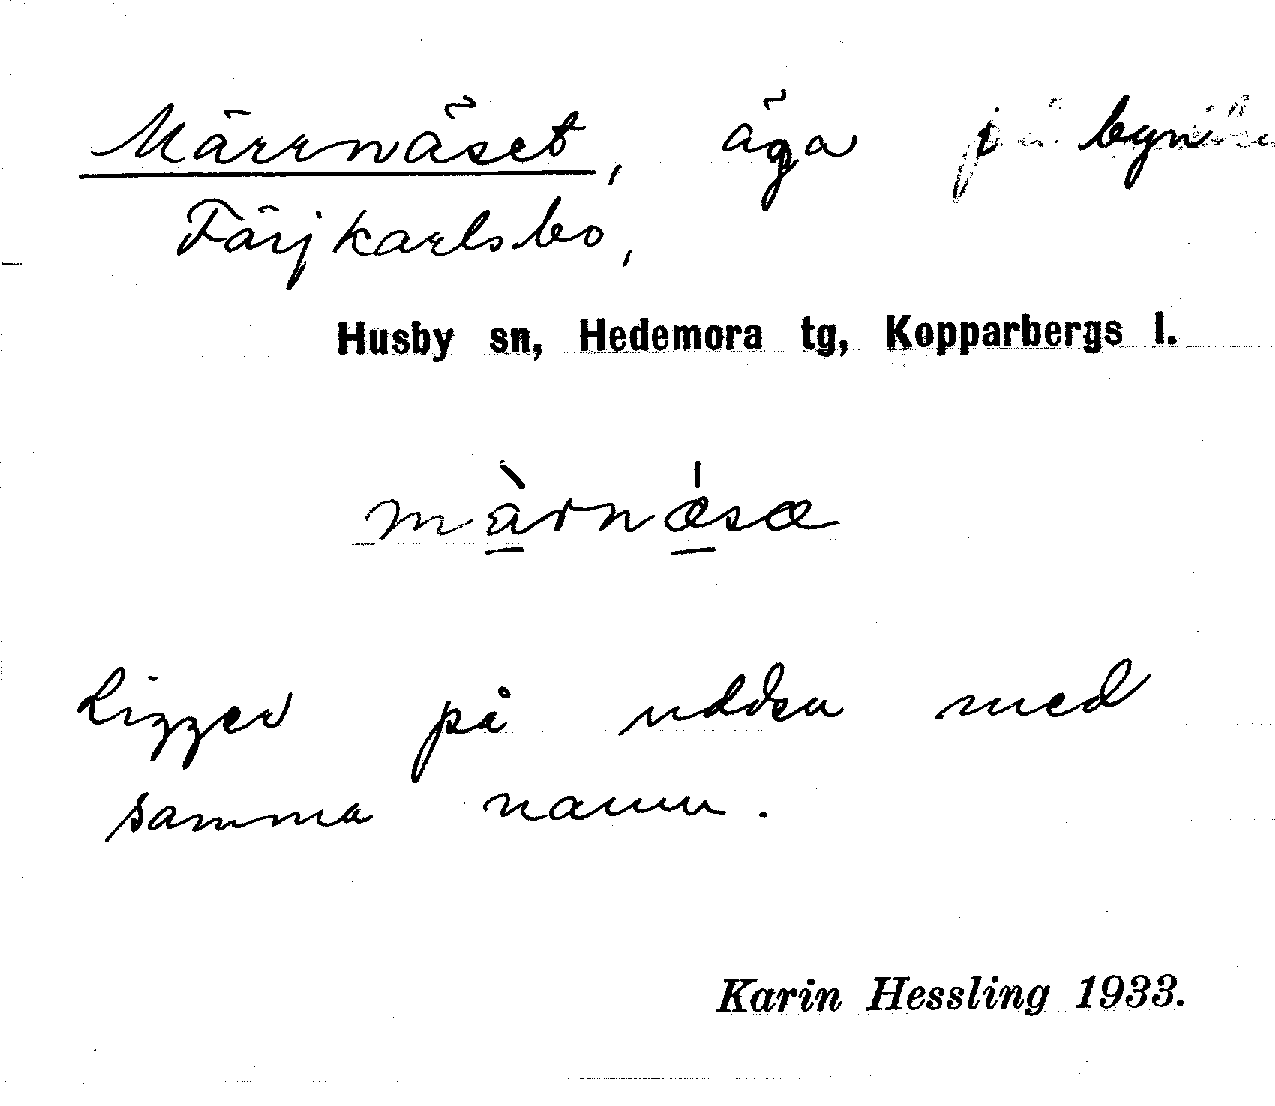 Märrnäset, äga på
Färjkarlsbo,
Husby sn, Hedemora tg, Kopparbergs l.
màrnǽsæ
Ligger på udden med
samma namn.
Karin Hessling 1933.